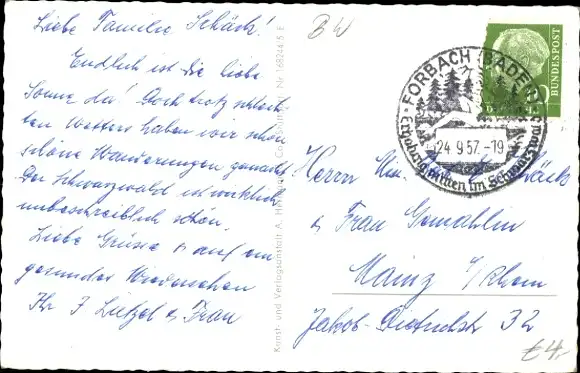 Liebe Familie Schäck!
Endlich ist die liebe
Sonne da! Doch trotz schlech-
ten Wetters haben wir schon
schöne Wanderungen gemacht.
Der Schwarzwald ist wirklich
unbeschreiblich schön.
Liebe Grüsse & auf ein
gesundes Wiedersehen
Ihr J Lutzel & Frau
Kunst- und Verlagsanstalt A.
BW
FORBACH (BADEN)
24.9.57.-19
im Schwarzwald
DEUTSCHE BUNDESPOST
Herrn
& Frau Gemahlin
Mainz / Rhein
Jakob-Dietrichstr 32
£4-